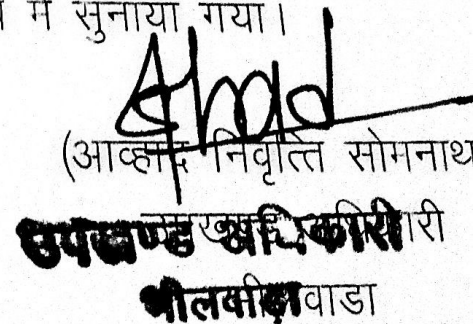 में सुनाया गया।
(आव्हाद निवृत्ति सोमनाथ
उपखण्ड अधिकारी
भीलवाडा